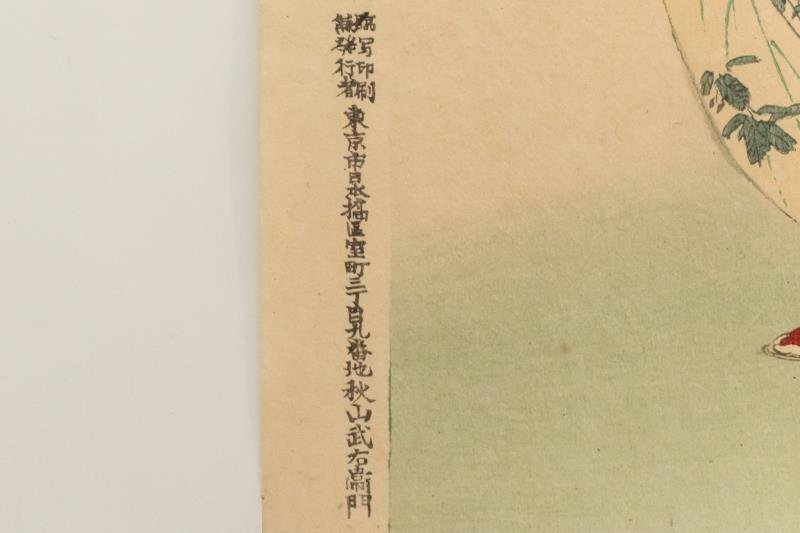 臨写印刷
兼発行者
東京市日本橋區室町三丁目九番地秋山武右衛門